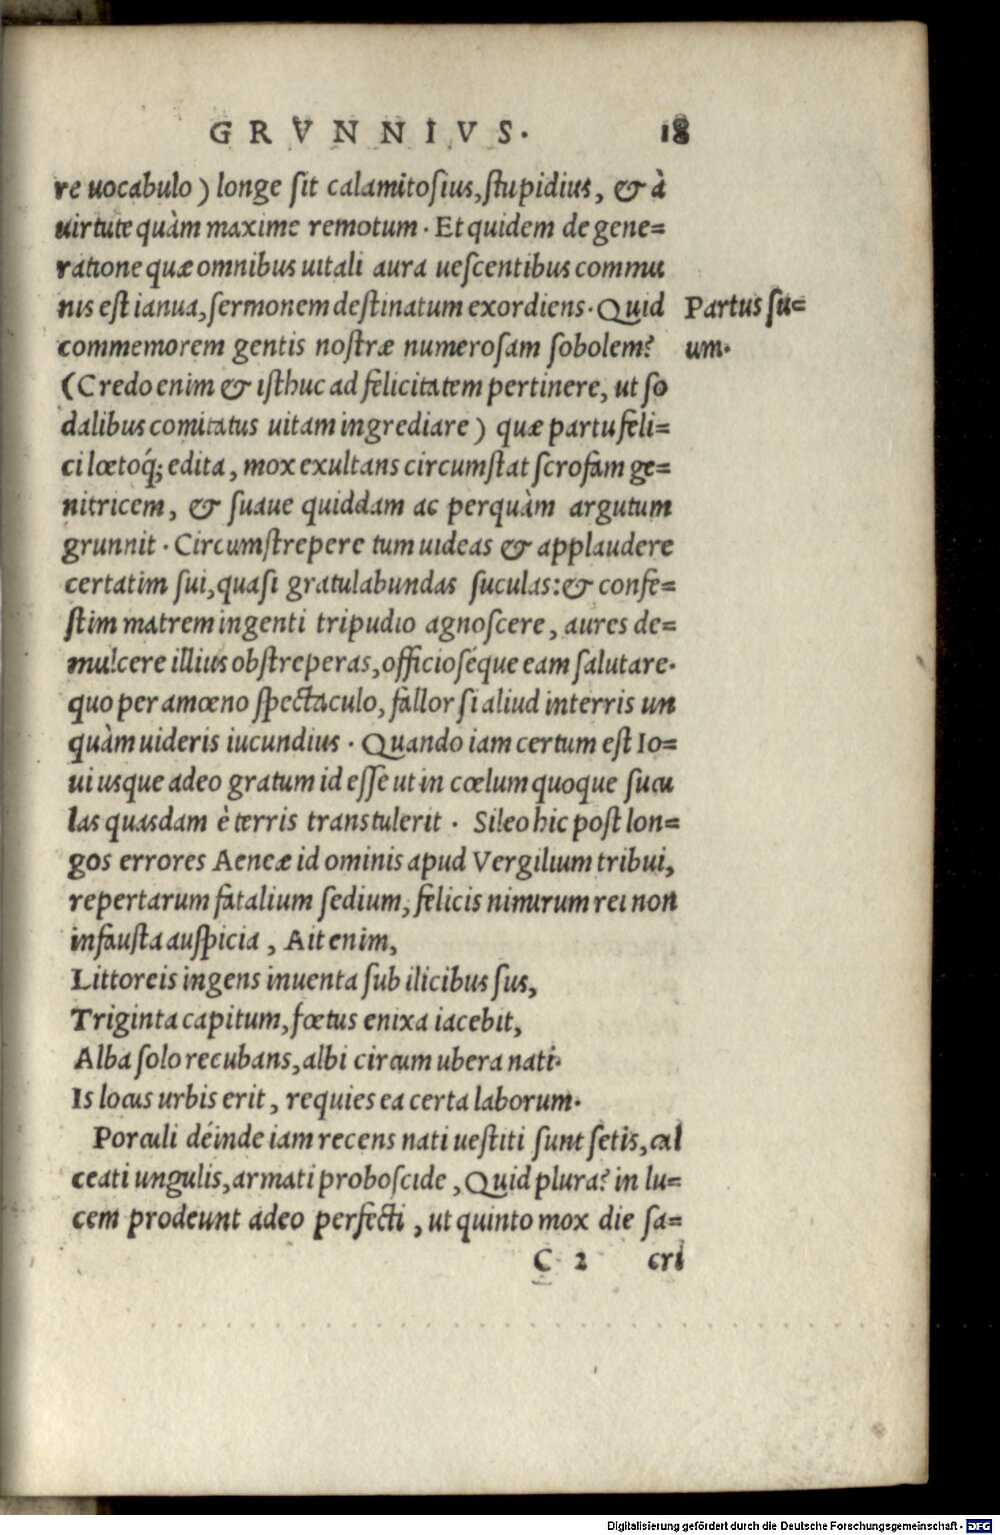 GRVNNIVS. 18
re uocabulo) longe sit calamitosius, stupidius, & à
uirtute quàm maxime remotum. Et quidem de gene=
ratione quæ omnibus uitali aura uescentibus commu
nis est ianua, sermonem destinatum exordiens. Quid
Partus su=
um.
commemorem gentis nostræ numerosam sobolem?
(Credo enim & isthuc ad felicitatem pertinere, ut so
dalibus comitatus uitam ingrediare) quæ partu feli=
ci lœtoq́; edita, mox exultans circumstat scrofam ge=
nitricem, & suaue quiddam ac perquàm argutum
grunnit. Circumstrepere tum uideas & applaudere
certatim sui, quasi gratulabundas suculas: & confe=
stim matrem ingenti tripudio agnoscere, aures de=
mulcere illius obstreperas, officioséque eam salutare.
quo per amœno spectaculo, fallor si aliud in terris un
quàm uideris iucundius. Quando iam certum est Io=
ui usque adeo gratum id esse ut in cœlum quoque sucu
las quasdam è terris transtulerit. Sileo hic post lon=
gos errores Aeneæ id ominis apud Vergilium tribui,
repertarum fatalium sedium, felicis nimirum rei non
infausta auspicia, Ait enim,
Littoreis ingens inuenta sub ilicibus sus,
Triginta capitum, fœtus enixa iacebit,
Alba solo recubans, albi circum ubera nati.
Is locus urbis erit, requies ea certa laborum.
Porculi déinde iam recens nati uestiti sunt setis, cal
ceati ungulis, armati proboscide, Quid plura? in lu=
cem prodeunt adeo perfecti, ut quinto mox die sa=
C 2 cri
Digitalisierung gefördert durch die Deutsche Forschungsgemeinschaft - DFG